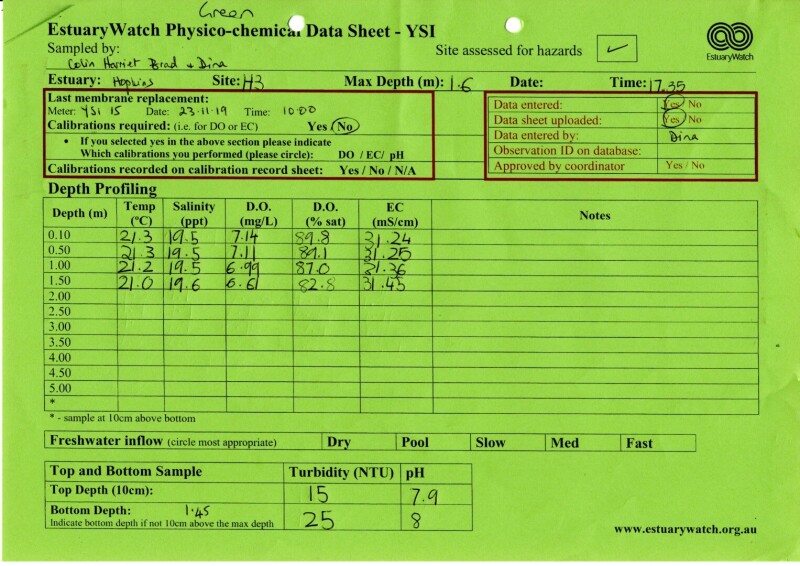 Green
EstuaryWatch Physico-chemical Data Sheet - YSI
Sampled by:
Colin Harriet Brad + Dina
Site assessed for hazards ✓
EstuaryWatch
Estuary: Hopkins Site: H3 Max Depth (m): 1.6 Date: Time: 17.35
Last membrane replacement:
Meter: YSI 15 Date: 23-11-19 Time: 10:00
Calibrations required: (i.e. for DO or EC) Yes / No
• If you selected yes in the above section please indicate
Which calibrations you performed (please circle): DO / EC/ pH
Calibrations recorded on calibration record sheet: Yes / No / N/A
Data entered: Yes / No
Data sheet uploaded: Yes / No
Data entered by: Dina
Observation ID on database:
Approved by coordinator Yes / No
Depth Profiling
Depth (m) Temp (ºC) Salinity (ppt) D.O. (mg/L) D.O. (% sat) EC (mS/cm) Notes
0.10 21.3 19.5 7.14 89.8 31.24
0.50 21.3 19.5 7.11 89.1 31.25
1.00 21.2 19.5 6.99 87.0 31.36
1.50 21.0 19.6 6.61 82.8 31.45
2.00
2.50
3.00
3.50
4.00
4.50
5.00
*
* - sample at 10cm above bottom
Freshwater inflow (circle most appropriate) Dry Pool Slow Med Fast
Top and Bottom Sample Turbidity (NTU) pH
Top Depth (10cm): 15 7.9
Bottom Depth: 1.45 25 8
Indicate bottom depth if not 10cm above the max depth
www.estuarywatch.org.au